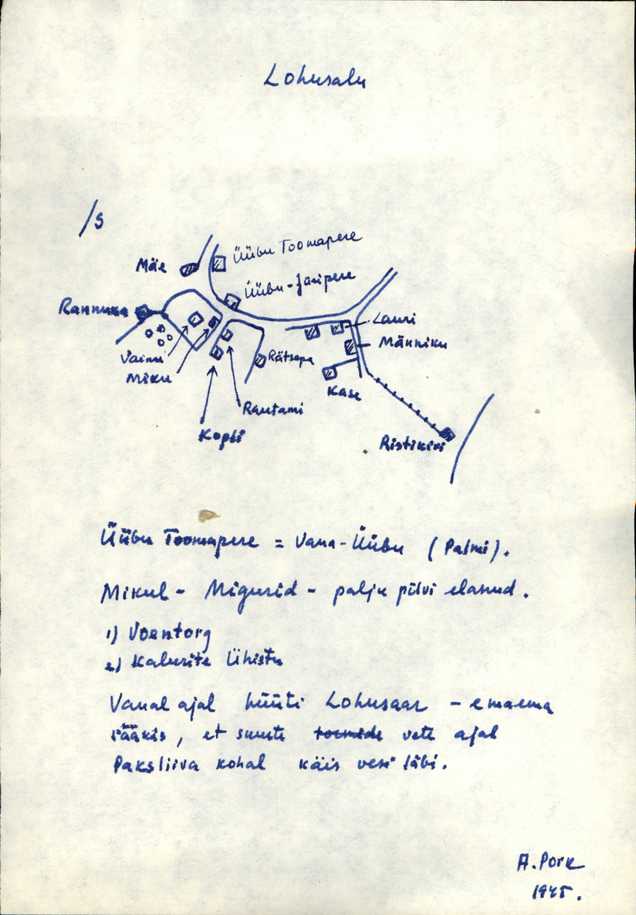 Lohusalu
/s
Üübu Toomapere
Mäe
Üübu-Jaripere
Rannuka
Lauri
Männiku
Vainu
Miku
Rätsepa
Kase
Rautami
Kopli
Ristikivi
Üübu Toomapere = Vana-Üübu (Palmi).
Mikul - Migurid - palju pilvi elanud.
1) Voentorg
2) Kalurite Ühistu
Vanal ajal hüüti Lohusaar - emaema
rääkis, et suurte tormide vete ajal
Paksliiva kohal käis vesi läbi.
A. Pork